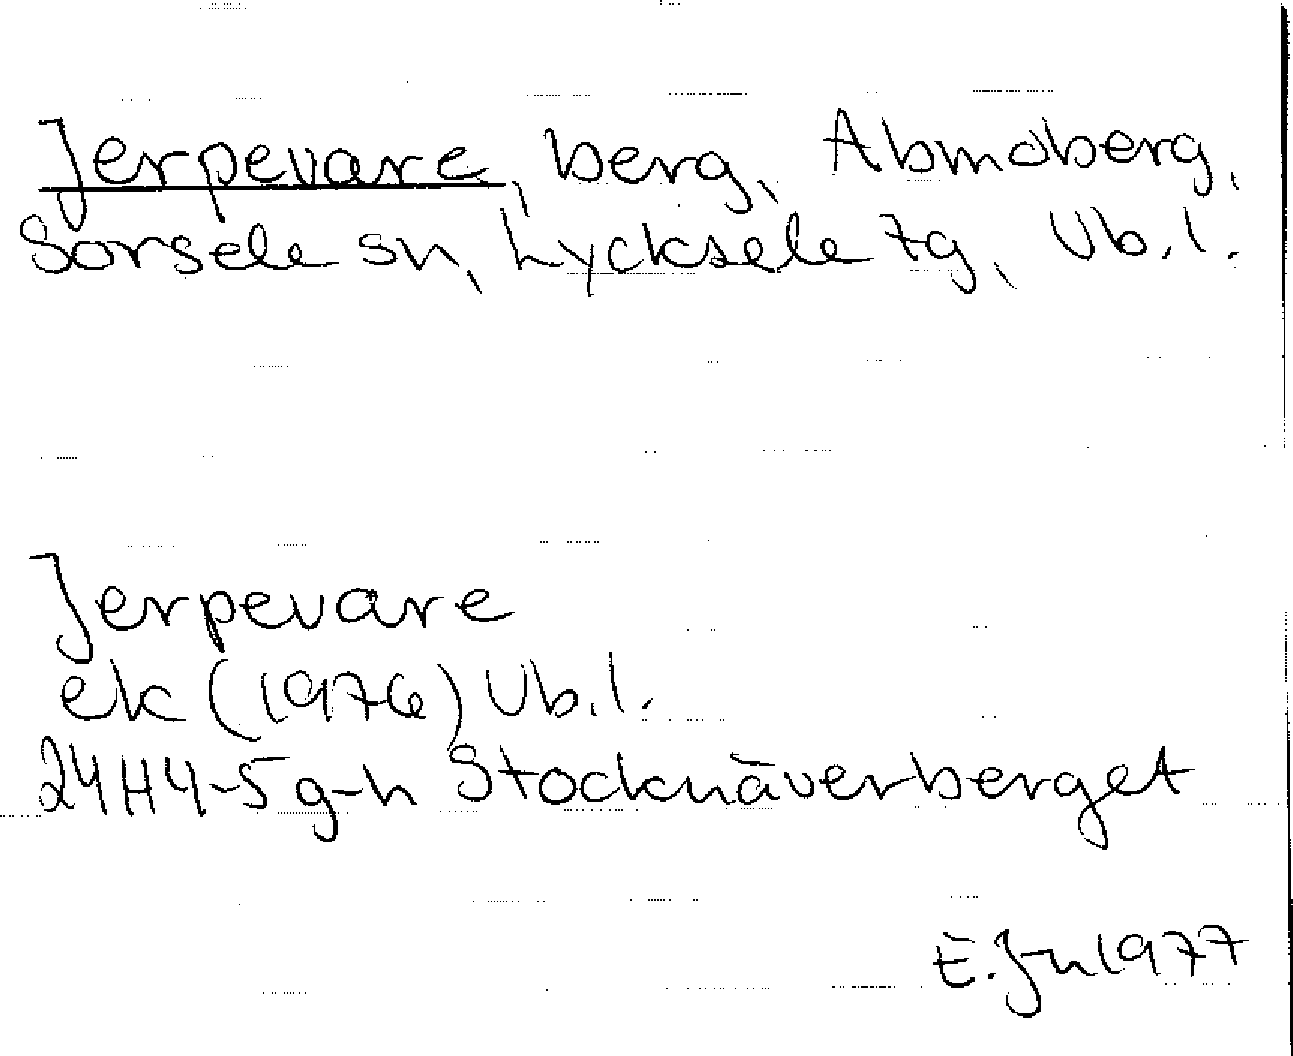 Jerpevare, berg, Abmoberg,
Sorsele sn, Lycksele tg, Vb.l.
Jerpevare
ek (1976) Vb.l.
24H4-5g-h Stocknäverberget
E. Jn 1977